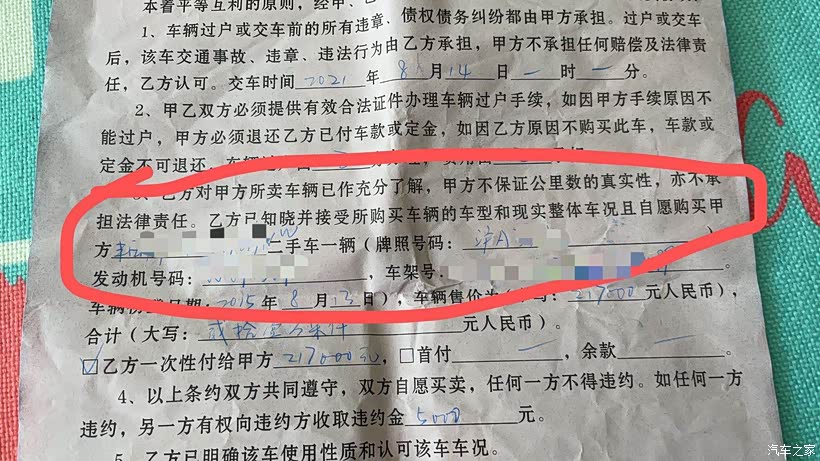 本着平等互利的原则，经甲、乙
1、车辆过户或交车前的所有违章、债权债务纠纷都由甲方承担。过户或交车
后，该车交通事故、违章、违法行为由乙方承担，甲方不承担任何赔偿及法律责
任，乙方认可。交车时间 2021 年 8 月 14 日 一 时 一 分。
2、甲乙双方必须提供有效合法证件办理车辆过户手续，如因甲方手续原因不
能过户，甲方必须退还乙方已付车款或定金，如因乙方原因不购买此车，车款或
定金不可退还。车辆
乙方对甲方所卖车辆已作充分了解，甲方不保证公里数的真实性，亦不承
担法律责任。乙方已知晓并接受所购买车辆的车型和现实整体车况且自愿购买甲
方 二手车一辆（牌照号码：沪A ）
发动机号码： ，车架号 。
车辆 日期：2015 年 8 月 13 日），车辆售价为 217000 元人民币），
合计（大写：贰拾壹万柒仟 元人民币）。
☑乙方一次性付给甲方 217000元，□首付 ，余款 。
4、以上条约双方共同遵守，双方自愿买卖，任何一方不得违约。如任何一方
违约，另一方有权向违约方收取违约金 5000 元。
5、乙方已明确该车使用性质和认可该车车况。
汽车之家